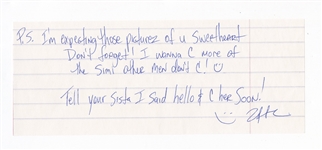 P.S. I'm expecting those picturez of u Sweetheart
Don't forget! I wanna C more of
the Simi other men don't C!
Tell your Sista I said hello & C her Soon!